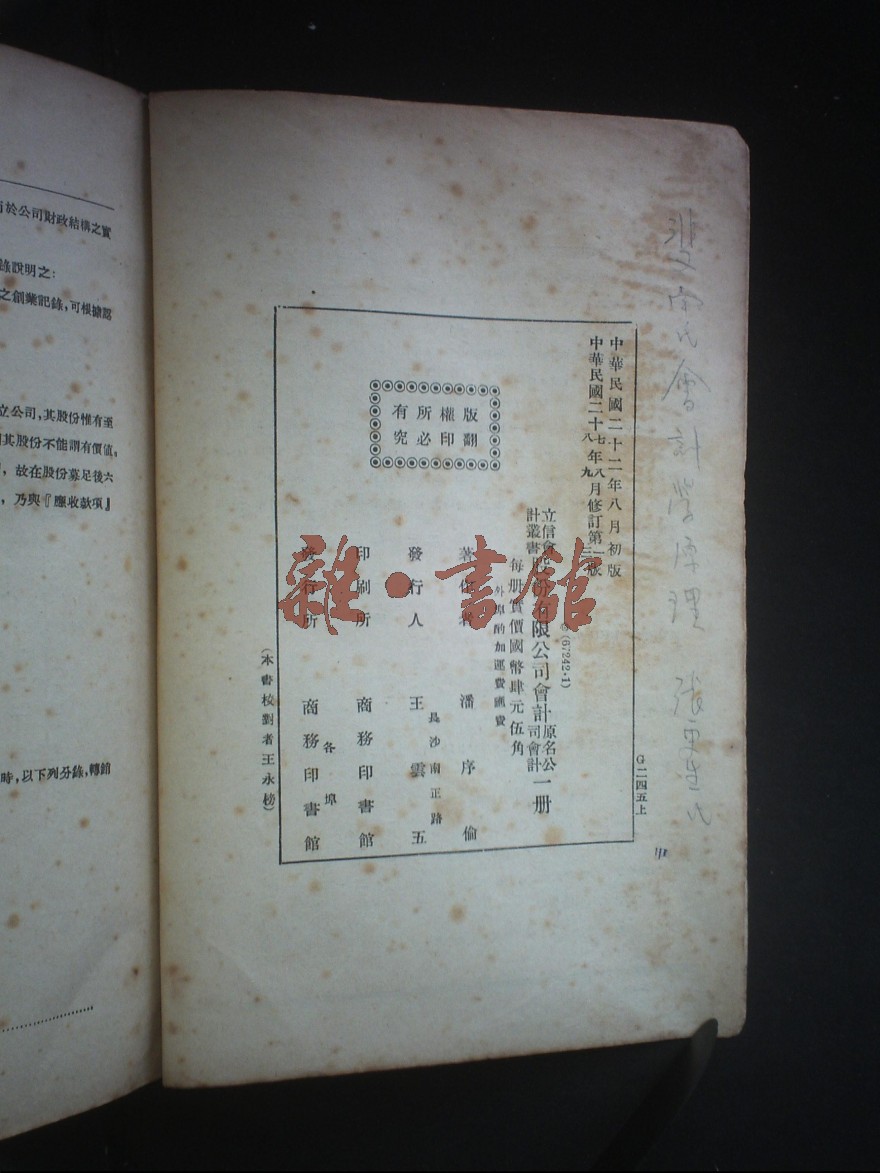 中華民國二十二年八月初版
中華民國二十七年八月修訂第一版
八 九 三
◎(67242·1)
立信會計叢書
股份有限公司會計
原名公司會計
一册
每册實價國幣肆元伍角
外埠酌加運費匯費
著作者 潘序倫
發行人 王雲五
長沙南正路
印刷所 商務印書館
發行所 商務印書館
各埠
(本書校對者王永榜)
版權所有
翻印必究
G二四五上
雜·書館
會計學原理
於公司財政結構之實
錄說明之:
之創業記錄,可根據認
立公司,其股份惟有至
其股份不能謂有價值。
,故在股份募足後六
,乃與『應收款項』
時,以下列分錄,轉銷